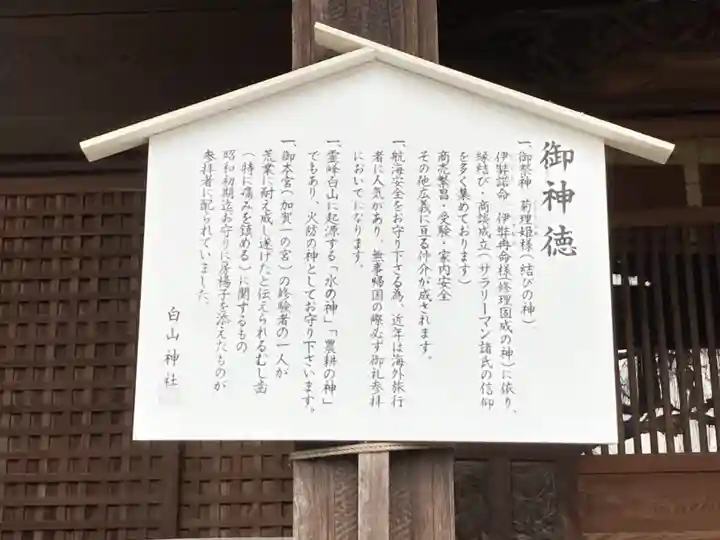 御神徳
一、御祭神 菊理姫様(結びの神)
伊弉諾命 伊弉冉命様修理国成の神)に依り、
縁結び・商談成立(サラリーマン諸氏の信仰
を多く集めております)
商売繁昌・受験・家内安全
その他広義に亘る仲介が成されます。
一、航海安全をお守り下さる為、近年は海外旅行
者に人気があり、無事帰国の際必ず御礼参拝
においでになります。
一、霊峰白山に起源する「水の神」「農耕の神」
でもあり、火防の神としてお守り下さいます。
一、御本宮(加賀一の宮)の修験者の一人が
荒業に耐え成し遂げたと伝えられるむし歯
(特に痛みを鎮める)に関するもの
昭和初期迄お守りに房楊子を添えたものが
参拝者に配られていました。
白山神社